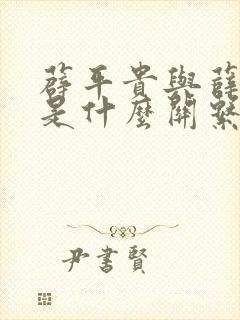 薛平貴與薛
是什麼關系
尹書賢